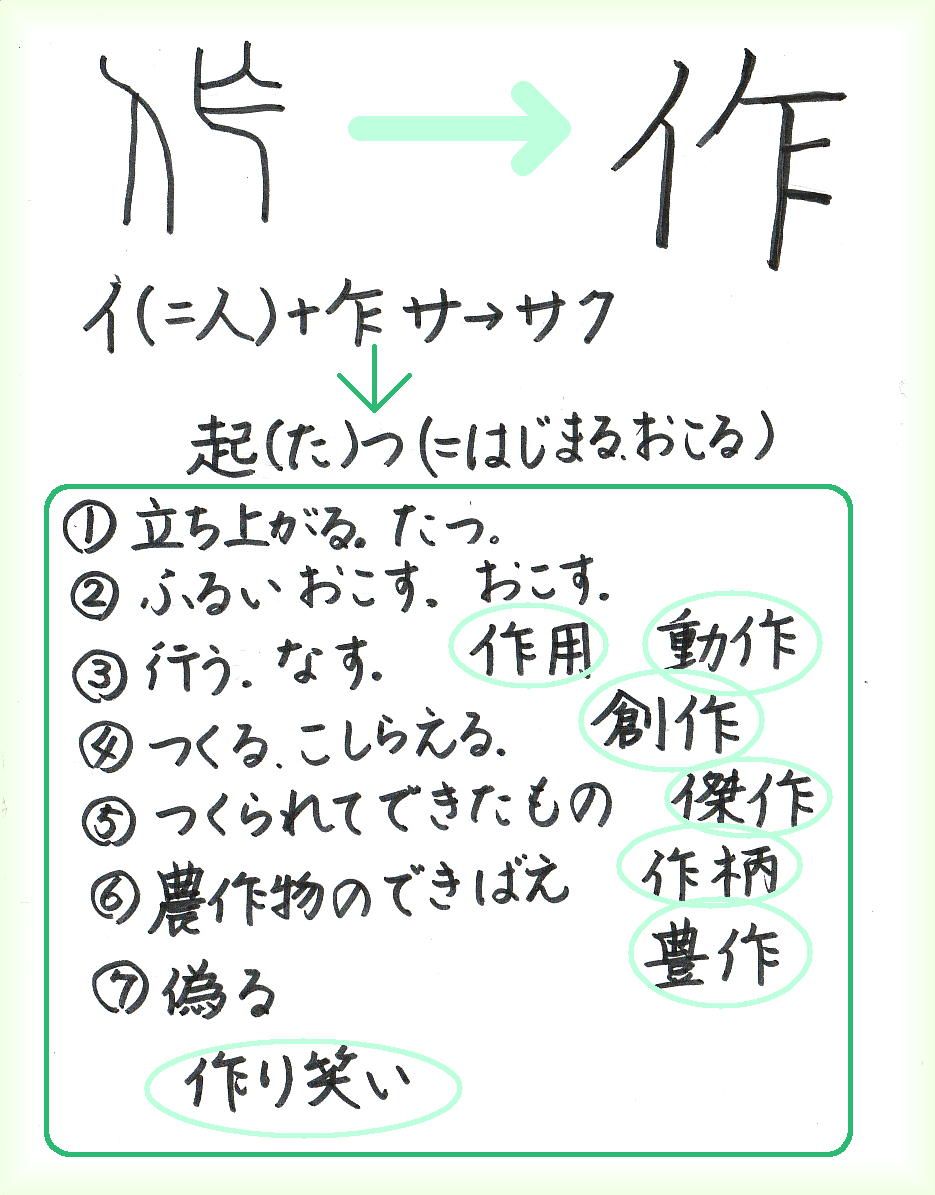 作 → 作
亻(=人)+乍 サ→サク
↓
起(た)つ(=はじまる、おこる)
① 立ち上がる。たつ。
② ふるいおこす。おこす。
③ 行う。なす。 作用 動作
④ つくる、こしらえる。 創作
⑤ つくられてできたもの 傑作
⑥ 農作物のできばえ 作柄
豊作
⑦ 偽る
作り笑い